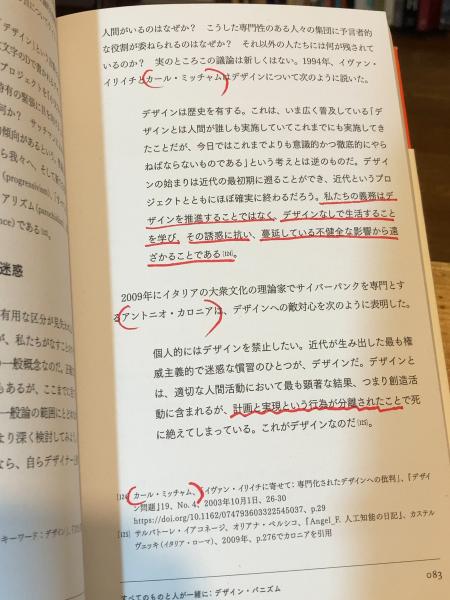 人間がいるのはなぜか？　こうした専門性のある人々の集団に予言者的
な役割が委ねられるのはなぜか？　それ以外の人たちには何が残されて
いるのか？　実のところこの議論は新しくはない。1994年、イヴァン・
イリイチとカール・ミッチャムはデザインについて次のように説いた。
デザインは歴史を有する。これは、いま広く普及している「デ
ザインとは人間が誰しも実施していてこれまでにも実施してき
たことだが、今日ではこれまでよりも意識的かつ徹底的にやら
ねばならないものである」という考えとは逆のものだ。デザイ
ンの始まりは近代の最初期に遡ることができ、近代というプロ
ジェクトとともにほぼ確実に終わるだろう。私たちの義務はデ
ザインを推進することではなく、デザインなしで生活すること
を学び、その誘惑に抗い、蔓延している不健全な影響から遠
ざかることである[124]。
2009年にイタリアの大衆文化の理論家でサイバーパンクを専門とす
るアントニオ・カロニアは、デザインへの敵対心を次のように表明した。
個人的にはデザインを禁止したい。近代が生み出した最も権
威主義的で迷惑な慣習のひとつが、デザインだ。デザインと
は、適切な人間活動において最も顕著な結果、つまり創造活
動に含まれるが、計画と実現という行為が分離されたことで死
に絶えてしまっている。これがデザインなのだ[125]。
[124] カール・ミッチャム、「イヴァン・イリイチに寄せて：専門化されたデザインへの批判」、『デザイ
ン問題』19、No. 4、2003年10月1日、26-30
https://doi.org/10.1162/074793603322545037、p.29
[125] サルバトーレ・イアコネージ、オリアナ・ペルシコ、『Angel_F. 人工知能の日記』、カステル
ヴェッキ（イタリア・ローマ）、2009年、p.276でカロニアを引用
すべてのものと人が一緒に：デザイン・パニズム
083